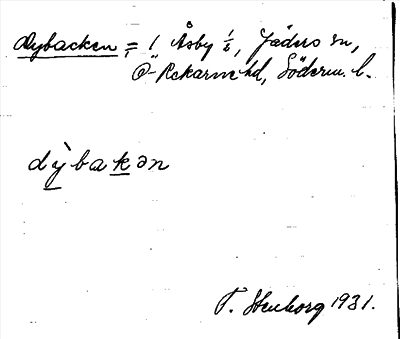 Dybacken, = 1 Åsby 1/6, Jäders sn,
Ö-Rekarne hd, Söderm. l.
dỳbakən
T. Stenborg 1931.